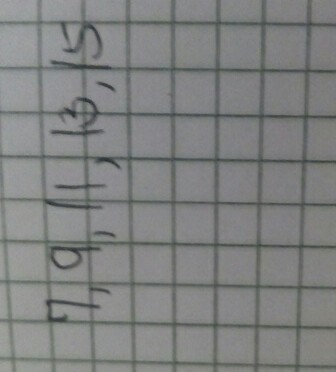 7, 9, 11, 13, 15